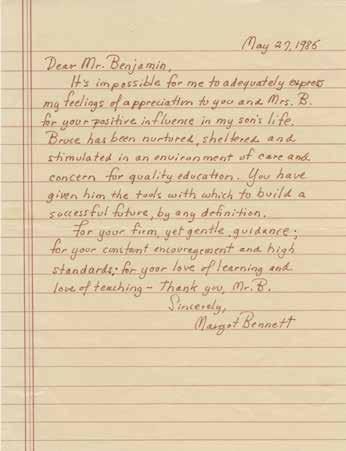 May 27, 1986
Dear Mr. Benjamin,
It's impossible for me to adequately express
my feelings of appreciation to you and Mrs. B.
for your positive influence in my son's life.
Bruce has been nurtured, sheltered and
stimulated in an environment of care and
concern for quality education. You have
given him the tools with which to build a
successful future, by any definition.
For your firm, yet gentle, guidance;
for your constant encouragement and high
standards; for your love of learning and
love of teaching - Thank you, Mr. B.
Sincerely,
Margot Bennett